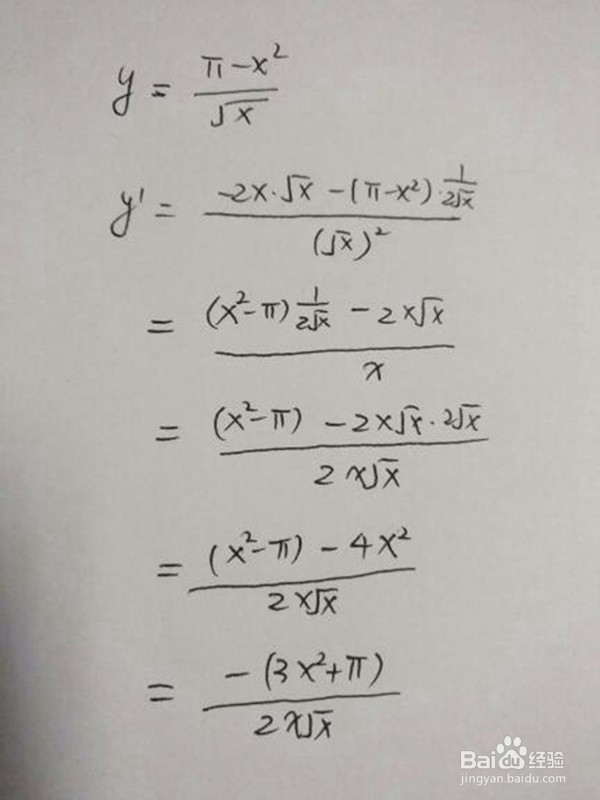 y = (π-x²)/√x
y' = (-2x·√x - (π-x²)·1/(2√x))/(√x)²
= ((x²-π) 1/(2√x) - 2x√x)/x
= ((x²-π) - 2x√x·2√x)/(2x√x)
= ((x²-π) - 4x²)/(2x√x)
= -(3x²+π)/(2x√x)
Baidu经验
jingyan.baidu.com